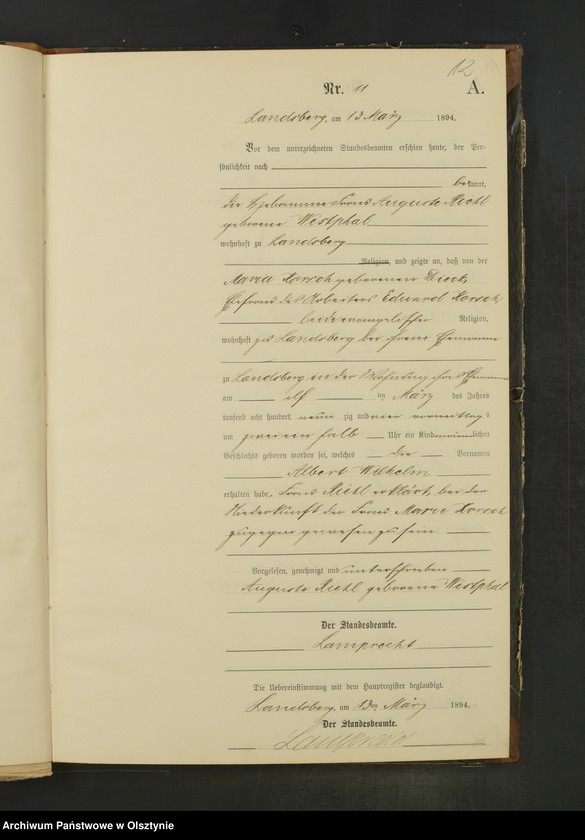 12
Nr. 11 A.
Landsberg, am 13 März 1894.
Vor dem unterzeichneten Standesbeamten erschien heute, der Per-
sönlichkeit nach
bekannt,
die Hebamme Frau Auguste Riehl
geborene Westphal
wohnhaft zu Landsberg
Religion, und zeigte an, daß von der
Maria Korsch geborenen Dieck,
Ehefrau des Arbeiters Eduard Korsch,
beide evangelischer Religion,
wohnhaft zu Landsberg bei ihrem Ehemanne
zu Landsberg in der Wohnung ihres Ehemannes
am elf ten März des Jahres
tausend acht hundert neun zig und vier vormittags
um zwei ein halb Uhr ein Kind männlichen
Geschlechts geboren worden sei, welches die Vornamen
Albert Wilhelm
erhalten habe. Frau Riehl erklärt, bei der
Niederkunft der Frau Marie Korsch
zugegen gewesen zu sein.
Vorgelesen, genehmigt und unterschrieben
Auguste Riehl geborene Westphal
Der Standesbeamte.
Lamprecht
Die Uebereinstimmung mit dem Hauptregister beglaubigt.
Landsberg, am 13ten März 1894.
Der Standesbeamte.
Lamprecht
Archiwum Państwowe w Olsztynie